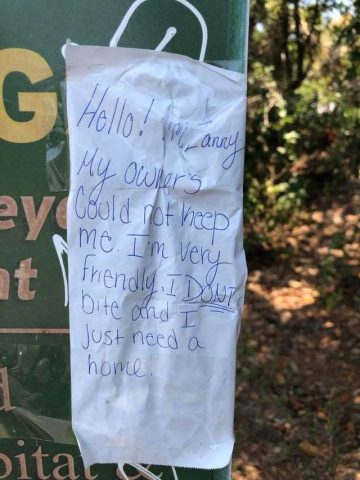 G
Hello! I'm Zanny
My owner's
Could not keep
me. I'm very
friendly. I DONT
bite and I
just need a
home.
eye
nt
d
oitat &